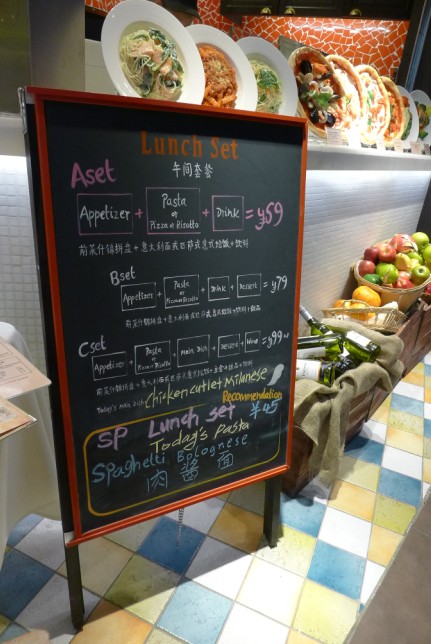 Lunch Set
午间套餐
A set
Appetizer + Pasta or Pizza or Risotto + Drink = y59
前菜什锦拼盘 + 意大利面或匹萨或意式烩饭 + 饮料
B set
Appetizer + Pasta or Pizza or Risotto + Drink + Dessert = y79
C set
Appetizer + Pasta or Pizza or Risotto + Main Dish + Dessert + Wine = y99
Today's main dish Chicken cutlet Milanese
Recommendation
SP Lunch set ¥45
Today's Pasta
Spaghetti Bolognese
肉酱面